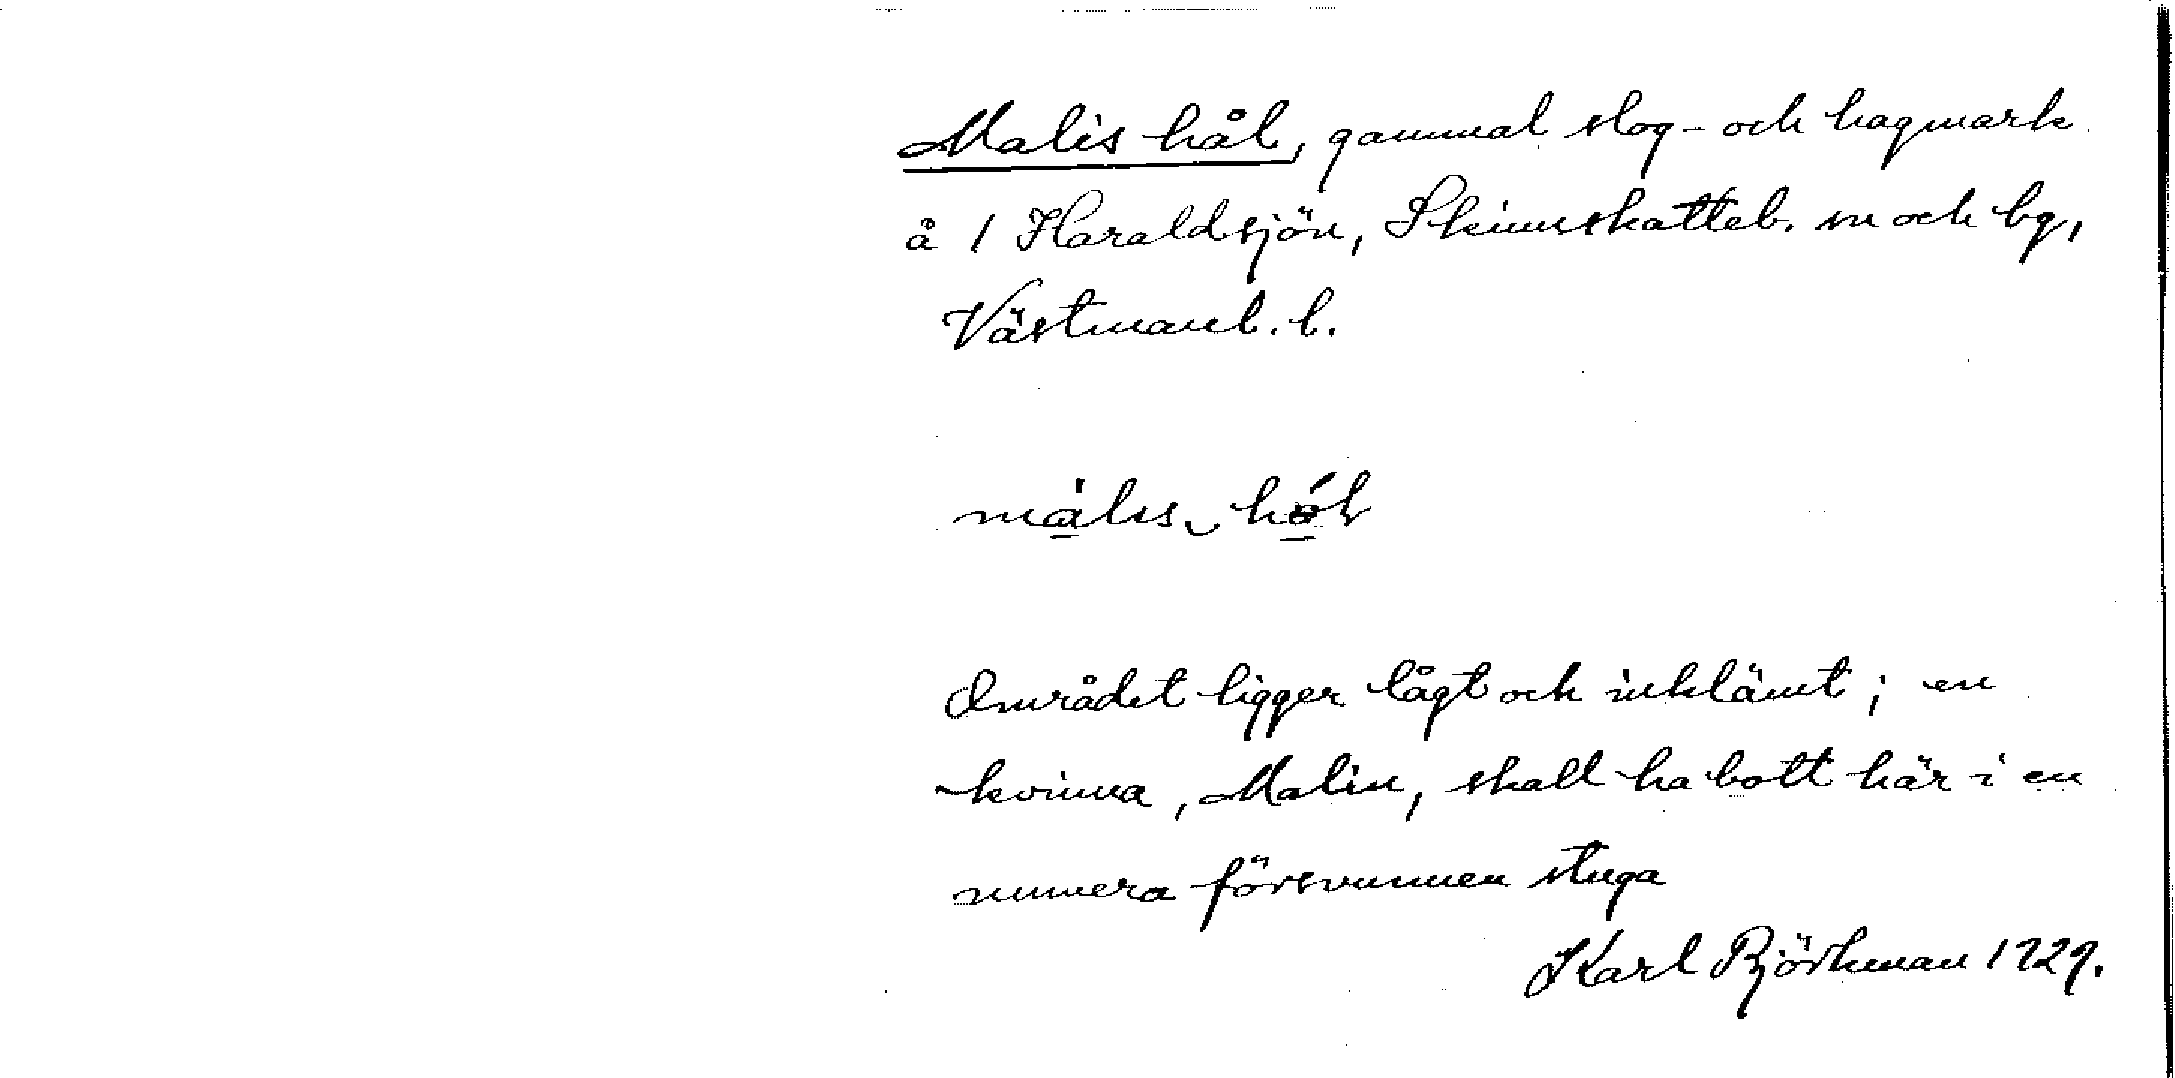 Malis hål, gammal slog- och hagmark
å 1 Haraldsjön, Skinnskatteb. sn och bg,
Västmanl. l.
màlis ‿ hól
Området ligger lågt och inklämt; en
kvinna, Malin, skall ha bott här i en
numera försvunnen stuga
Karl Björkman 1929.